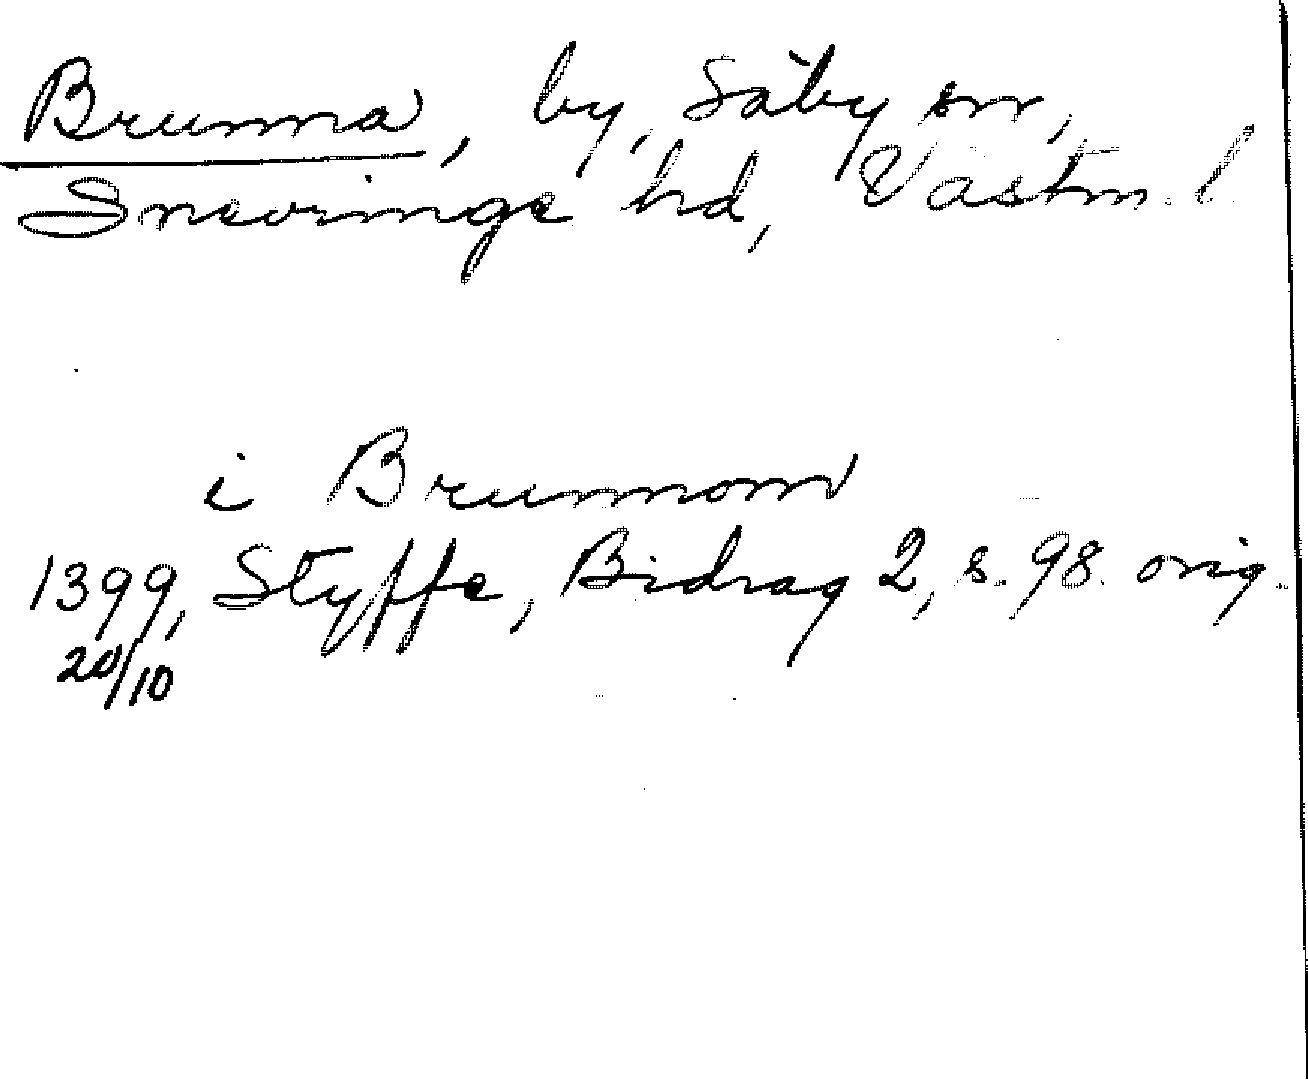 Brunna, by, Säby sn,
Snevringe hd, Västm. l
i Brunnom
1399, Styffe, Bidrag 2, s. 98. orig.
20/10